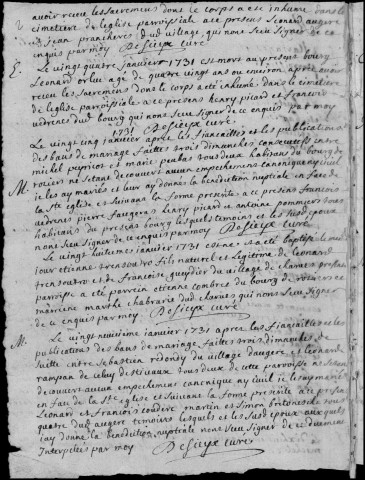 avoir receu les sacremens dont le corps a esté inhumé dans le
cimetiere de l'eglise parroissiale a ce presens Leonard augere
et jean prancheres dud village, qui nont seu signer de ce
enquis par moy Desieyx curé
E. Le vingt quatre janvier 1731 est mort au present bourg
Leonard orluc agé de quatre vingt ans ou environ apres avoir
receu les sacremens dont le corps a eté inhumé dans le cimetiere
de l'eglise parroissiale a ce presens henry picard et francois
vedrenes dud bourg qui nont seu signer de ce enquis par moy
Desieyx curé
M. Le vingt cinq janvier 1731 apres les fiancailles et les publications
des bans de mariage faittes trois dimanches consecutifs entre
michel peyriot et marie tous deux habitans du bourg de
ne setant decouvert aucun empechement canonique ny civil
je les ay mariés et leur ay donné la benediction nuptiale en face de
la Ste eglise et suivant la forme presente a ce presens francois
vedrenes pierre faugeras henry picard et antoine pommier tous
habitans du present bourg lesquels temoins et les sud epoux
nont seu signer de ce enquis par moy Desieyx curé
Le vingt huitieme janvier 1731 est né et a eté baptisé le meme
jour etienne trensoutro fils naturel et legitime de Leonard
trensoutro et de francoise gueydier du village de charues presente
parroisse a eté parrein etienne combre du bourg de
marreine marthe chabrarie dud charues qui nont seu signer
de ce enquis par moy Desieyx curé
M. Le vingt neuvieme janvier 1731 apres les fiancailles et les
publications des bans de mariage faittes trois dimanches de
suitte entre sebastien redondy du village daugere et leonarde
rampsan de celuy de tous deux de cette parroisse ne setant
decouvert aucun empechement canonique ny civil je les ay mariés
en face de la Ste eglise et suivant la forme presente a ce presens
Leonard et francois coudere martin et simon britones
quatre dud augere temoins lesquels et les sud epoux aux quels
jay donné la benediction nuptiale nont seu signer de ce duement
Interpelés par moy Desieyx curé